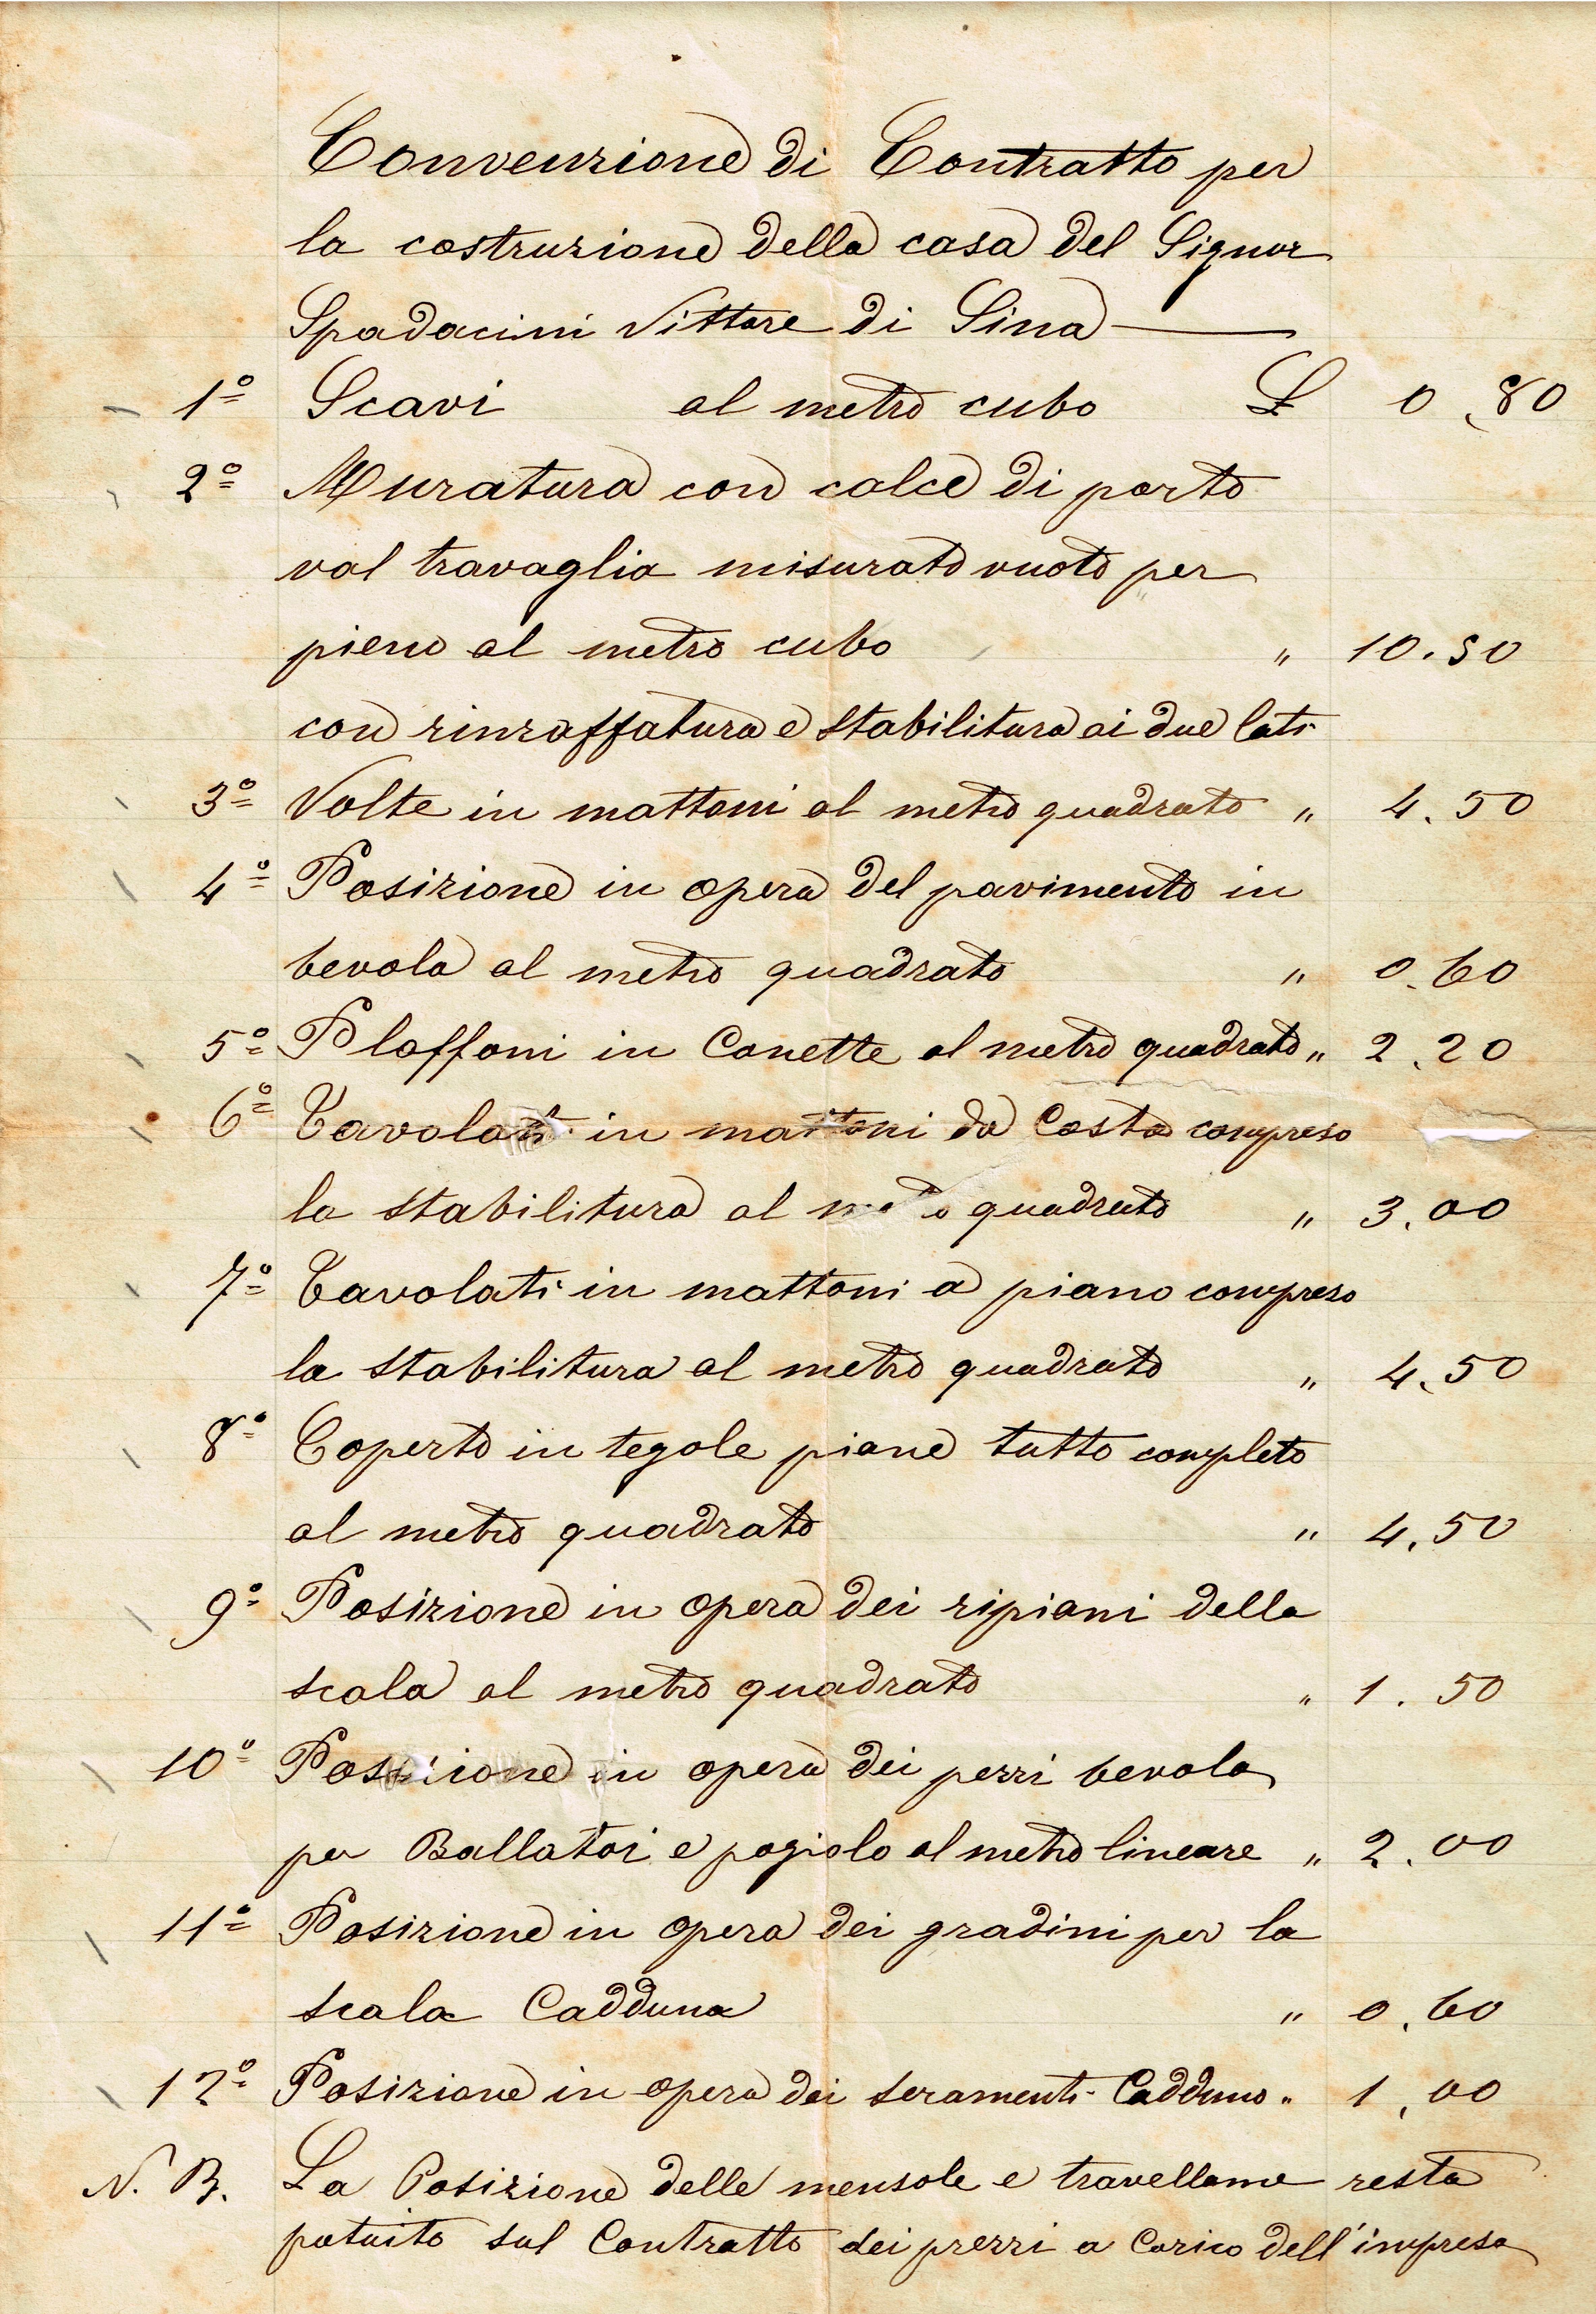 Convenzione di Contratto per
la costruzione della casa del Signor
Spadacini Vittore di Sina
1º Scavi al metro cubo £ 0.80
2º Muratura con calce di porto
val travaglia misurato vuoto per
pieno al metro cubo " 10.50
con rinzaffatura e stabilitura ai due lati
3º Volte in mattoni al metro quadrato " 4.50
4º Posizione in opera del pavimento in
bevola al metro quadrato " 0.60
5º Plaffoni in Canette al metro quadrato " 2.20
6º Tavolati in mattoni da Costa compreso
la stabilitura al metro quadrato " 3.00
7º Tavolati in mattoni a piano compreso
la stabilitura al metro quadrato " 4.50
8º Coperto in tegole piane tutto completo
al metro quadrato " 4.50
9º Posizione in opera dei ripiani della
scala al metro quadrato " 1.50
10º Posizione in opera dei pezzi bevola
per Ballatoi e pogiolo al metro lineare " 2.00
11º Posizione in opera dei gradini per la
scala Cadduna " 0.60
12º Posizione in opera dei seramenti Cadduno " 1.00
N. B. La Posizione delle mensole e travellame resta
patuito sul Contratto dei prezzi a Carico dell'impresa